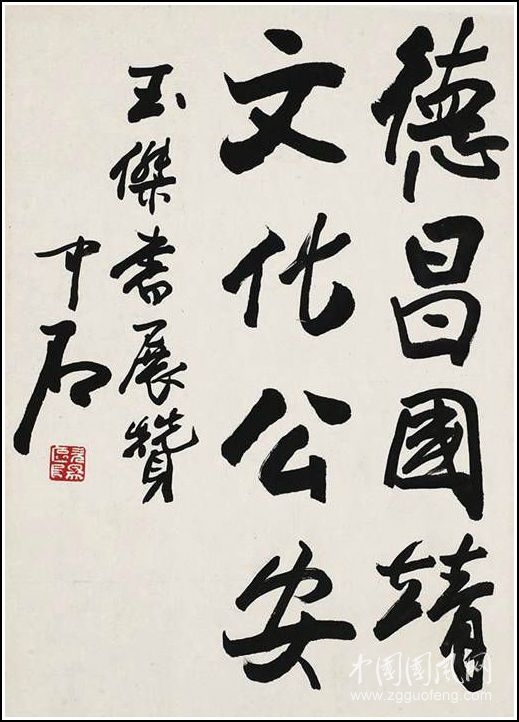 德昌國靖
文化公安
玉傑書展贊
中石
中国国风网
www.zgguofeng.com